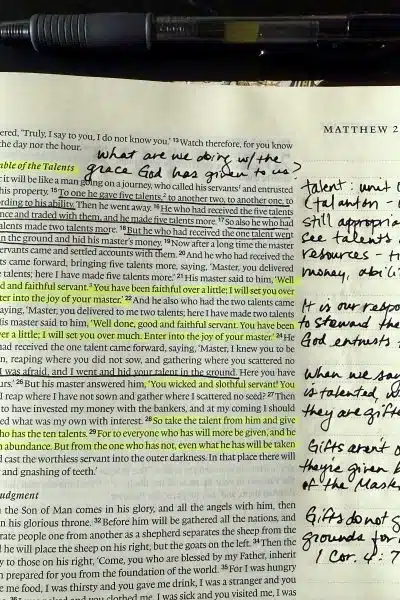 MATTHEW 2
ered, 'Truly, I say to you, I do not know you.' 13Watch therefore, for you
the day nor the hour.
what are we doing w/ the
grace God has given to us?
able of the Talents
it will be like a man going on a journey, who called his servants and entrusted
his property. 15To one he gave five talents,2 to another two, to another one, to
ording to his ability. Then he went away. 16He who had received the five talents
once and traded with them, and he made five talents more. 17So also he who had
talents made two talents more. 18But he who had received the one talent went
in the ground and hid his master's money. 19Now after a long time the master
servants came and settled accounts with them. 20And he who had received the
ts came forward, bringing five talents more, saying, 'Master, you delivered
e talents; here I have made five talents more.' 21His master said to him, 'Well
d and faithful servant. You have been faithful over a little; I will set you over
ter into the joy of your master.' 22And he also who had the two talents came
saying, 'Master, you delivered to me two talents; here I have made two talents
is master said to him, 'Well done, good and faithful servant. You have been
ver a little; I will set you over much. Enter into the joy of your master.' 24He
had received the one talent came forward, saying, 'Master, I knew you to be
n, reaping where you did not sow, and gathering where you scattered no
was afraid, and I went and hid your talent in the ground. Here you have
urs.' 26But his master answered him, 'You wicked and slothful servant! You
I reap where I have not sown and gather where I scattered no seed? 27Then
to have invested my money with the bankers, and at my coming I should
ed what was my own with interest. 28So take the talent from him and give
ho has the ten talents. 29For to everyone who has will more be given, and he
n abundance. But from the one who has not, even what he has will be taken
d cast the worthless servant into the outer darkness. In that place there will
and gnashing of teeth.'
udgment
n the Son of Man comes in his glory, and all the angels with him, then
n his glorious throne. 32Before him will be gathered all the nations, and
rate people one from another as a shepherd separates the sheep from the
d he will place the sheep on his right, but the goats on the left. 34Then the
y to those on his right, 'Come, you who are blessed by my Father, inherit
n prepared for you from the foundation of the world. 35For I was hungry
e me food, I was thirsty and you gave me drink, I was a stranger and you
me, 36I was naked and you clothed me, I was sick and you visited me, I was
talent: unit o
(talanton -
still appropria
see talents a
resources - ti
money, abili
It is our respo
to steward the
God entrusts t
When we say
is talented, w
they are gifte
Gifts aren't o
they're given b
of the Maste
Gifts do not g
grounds for
1 Cor. 4:7